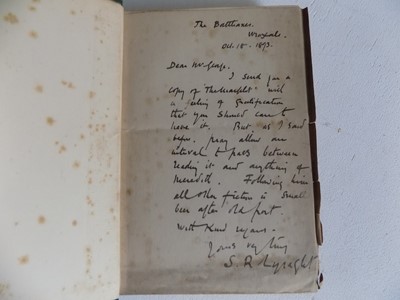 The
Oct. 18 - 1893.
Dear Mr George.
I send you a
copy of "The Marplot" with
a feeling of gratification
that you should care to
have it. But, as I said
before, pray allow an
interval to pass between
reading it and anything of
Meredith. Following him
all other fiction is small
beer after old port
With kind regards.
Yours very truly
S. R. Lysaght